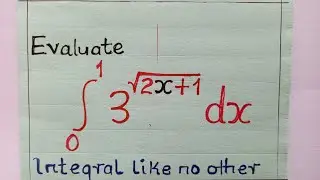 Evaluate
∫₀¹ 3^√(2x+1) dx
Integral like no other